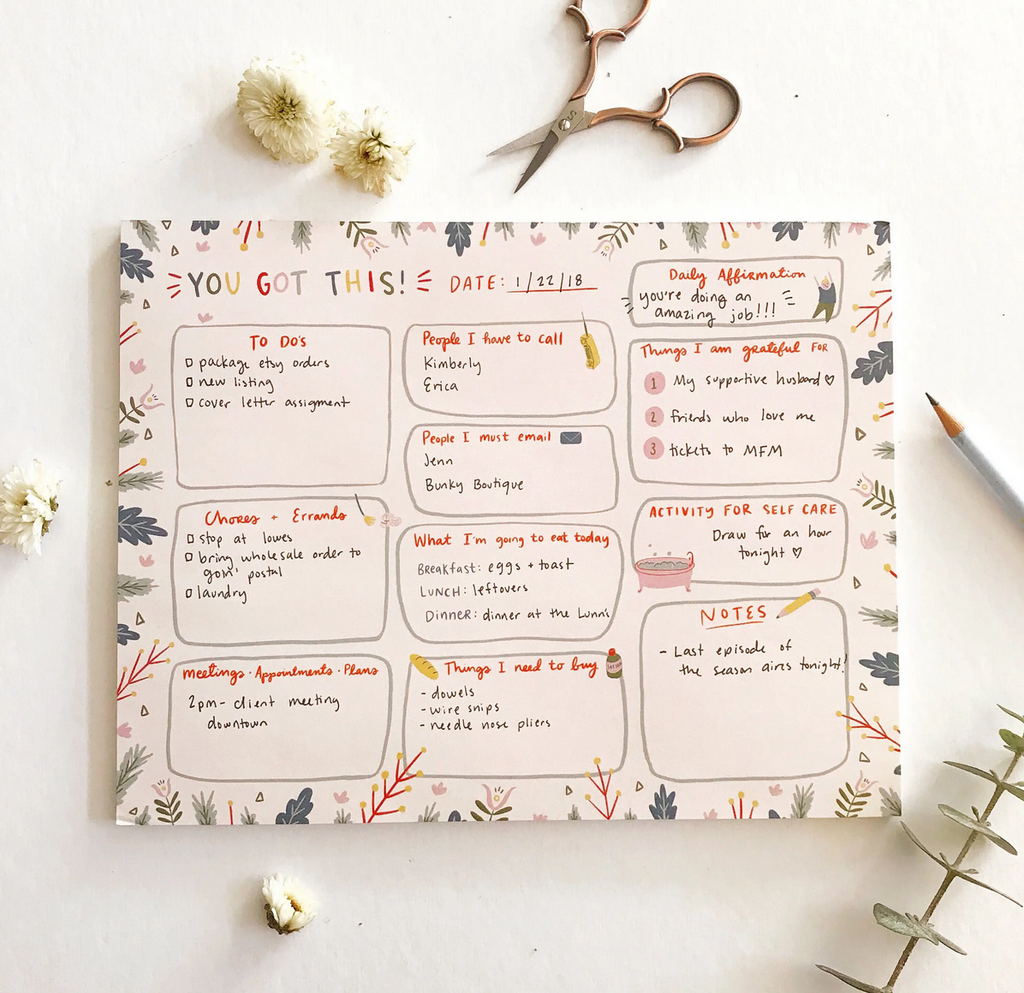 YOU GOT THIS!
DATE: 1/22/18
Daily Affirmation
you're doing an
amazing job!!!
TO DO'S
package etsy orders
new listing
cover letter assigment
Chores + Errands
stop at lowes
bring wholesale order to
goin' postal
laundry
meetings · Appointments · Plans
2pm- client meeting
downtown
People I have to call
Kimberly
Erica
People I must email
Jenn
Bunky Boutique
What I'm going to eat today
Breakfast: eggs + toast
LUNCH: leftovers
Dinner: dinner at the Lunn's
Things I need to buy
- dowels
- wire snips
- needle nose pliers
Things I am grateful FOR
1 My supportive husband ♡
2 friends who love me
3 tickets to MFM
ACTIVITY FOR SELF CARE
Draw for an hour
tonight ♡
NOTES
- Last episode of
the season aires tonight!